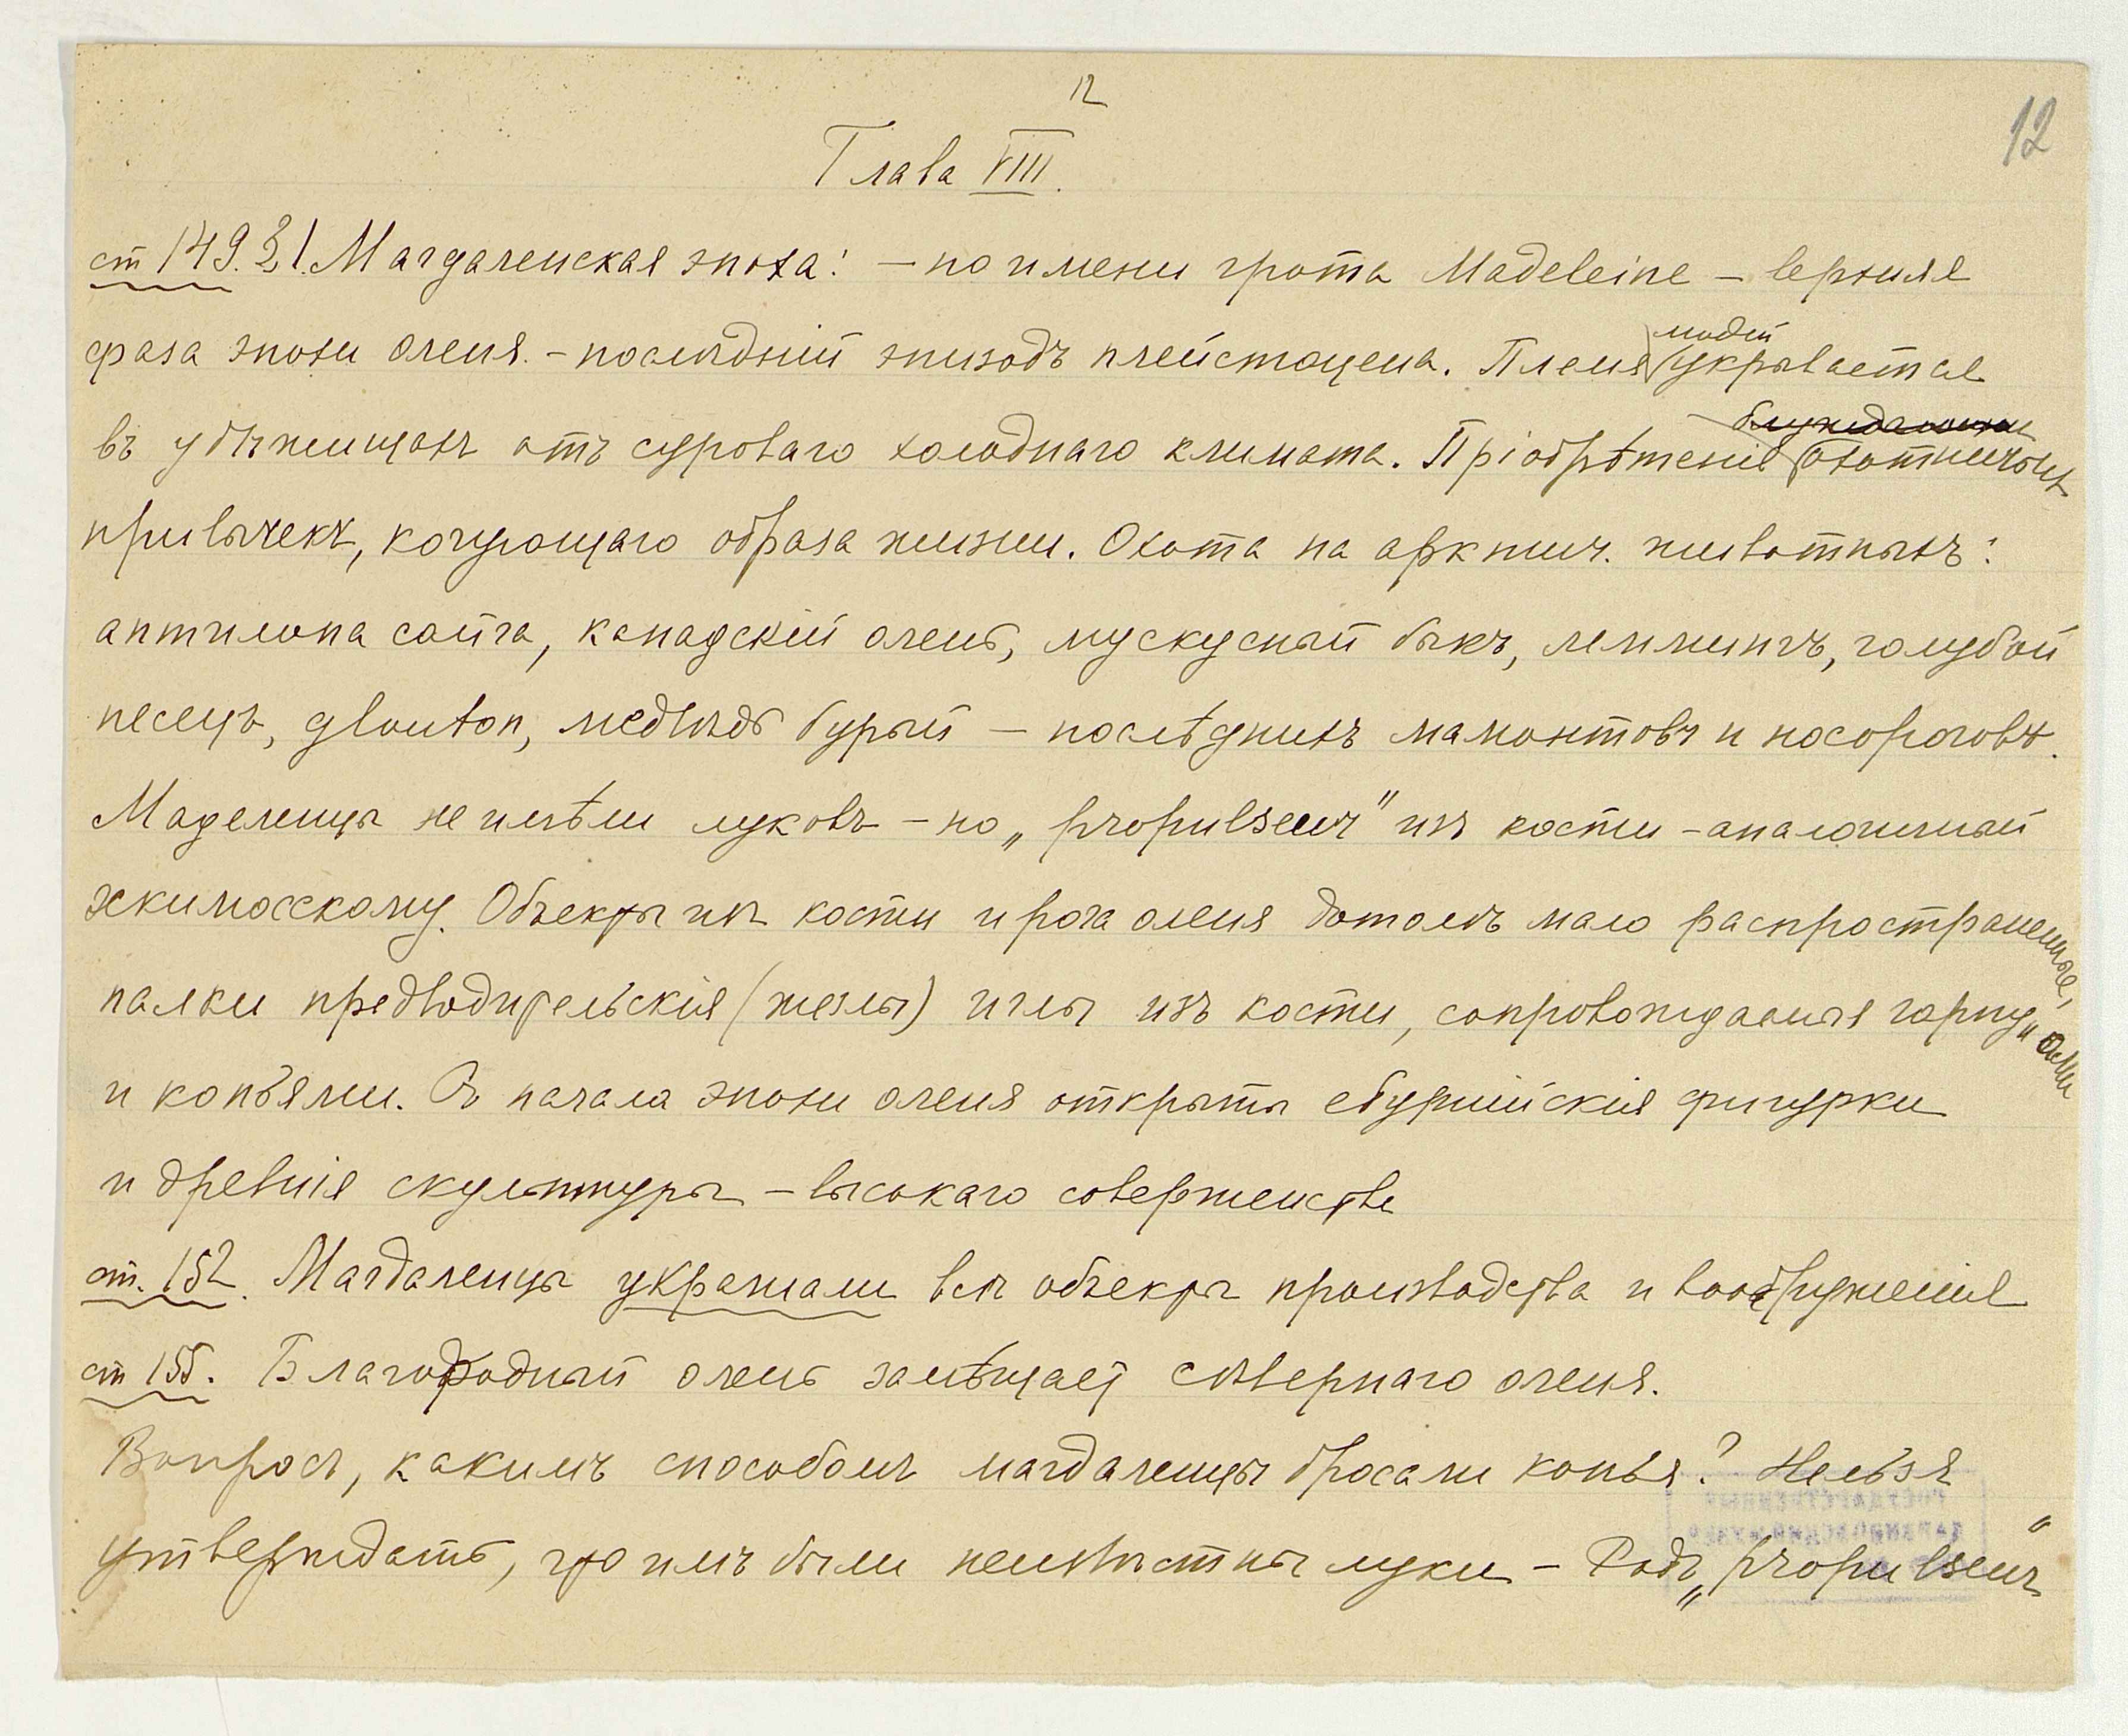 12
12
Глава VIII.
ст 149. § 1. Магдаленская эпоха: — по имени грота Madeleine — верхняя
фаза эпохи оленя. — послѣдній эпизодъ плейстоцена. Племя людей укрывается
въ убѣжищахъ отъ суроваго холоднаго климата. Пріобрѣтеніе охотничьихъ
привычекъ, кочующаго образа жизни. Охота на арктич. животныхъ:
антилопа сайга, канадскій олень, мускусный быкъ, леммингъ, голубой
песецъ, glouton, медвѣдь бурый — послѣднихъ мамонтовъ и носороговъ.
Маделенцы не имѣли луковъ — но „propulseur" изъ кости — аналогичный
эскимосскому. Объекты изъ кости и рога оленя дотолѣ мало распространенные,
палки предводительскія (жезлы) иглы изъ кости, сопровождаемыя гарпунами
и копьями. Съ начала эпохи оленя открыты эбурнійскія фигурки
и древнія скульптуры — высокаго совершенства
ст. 152. Магдаленцы украшали всѣ объекты производства и вооруженія
ст 155. Благородный олень замѣщаетъ сѣвернаго оленя.
Вопросъ, какимъ способомъ магдаленцы бросали копья? Нельзя
утверждать, что имъ были неизвѣстны луки — Родъ „propulseur"